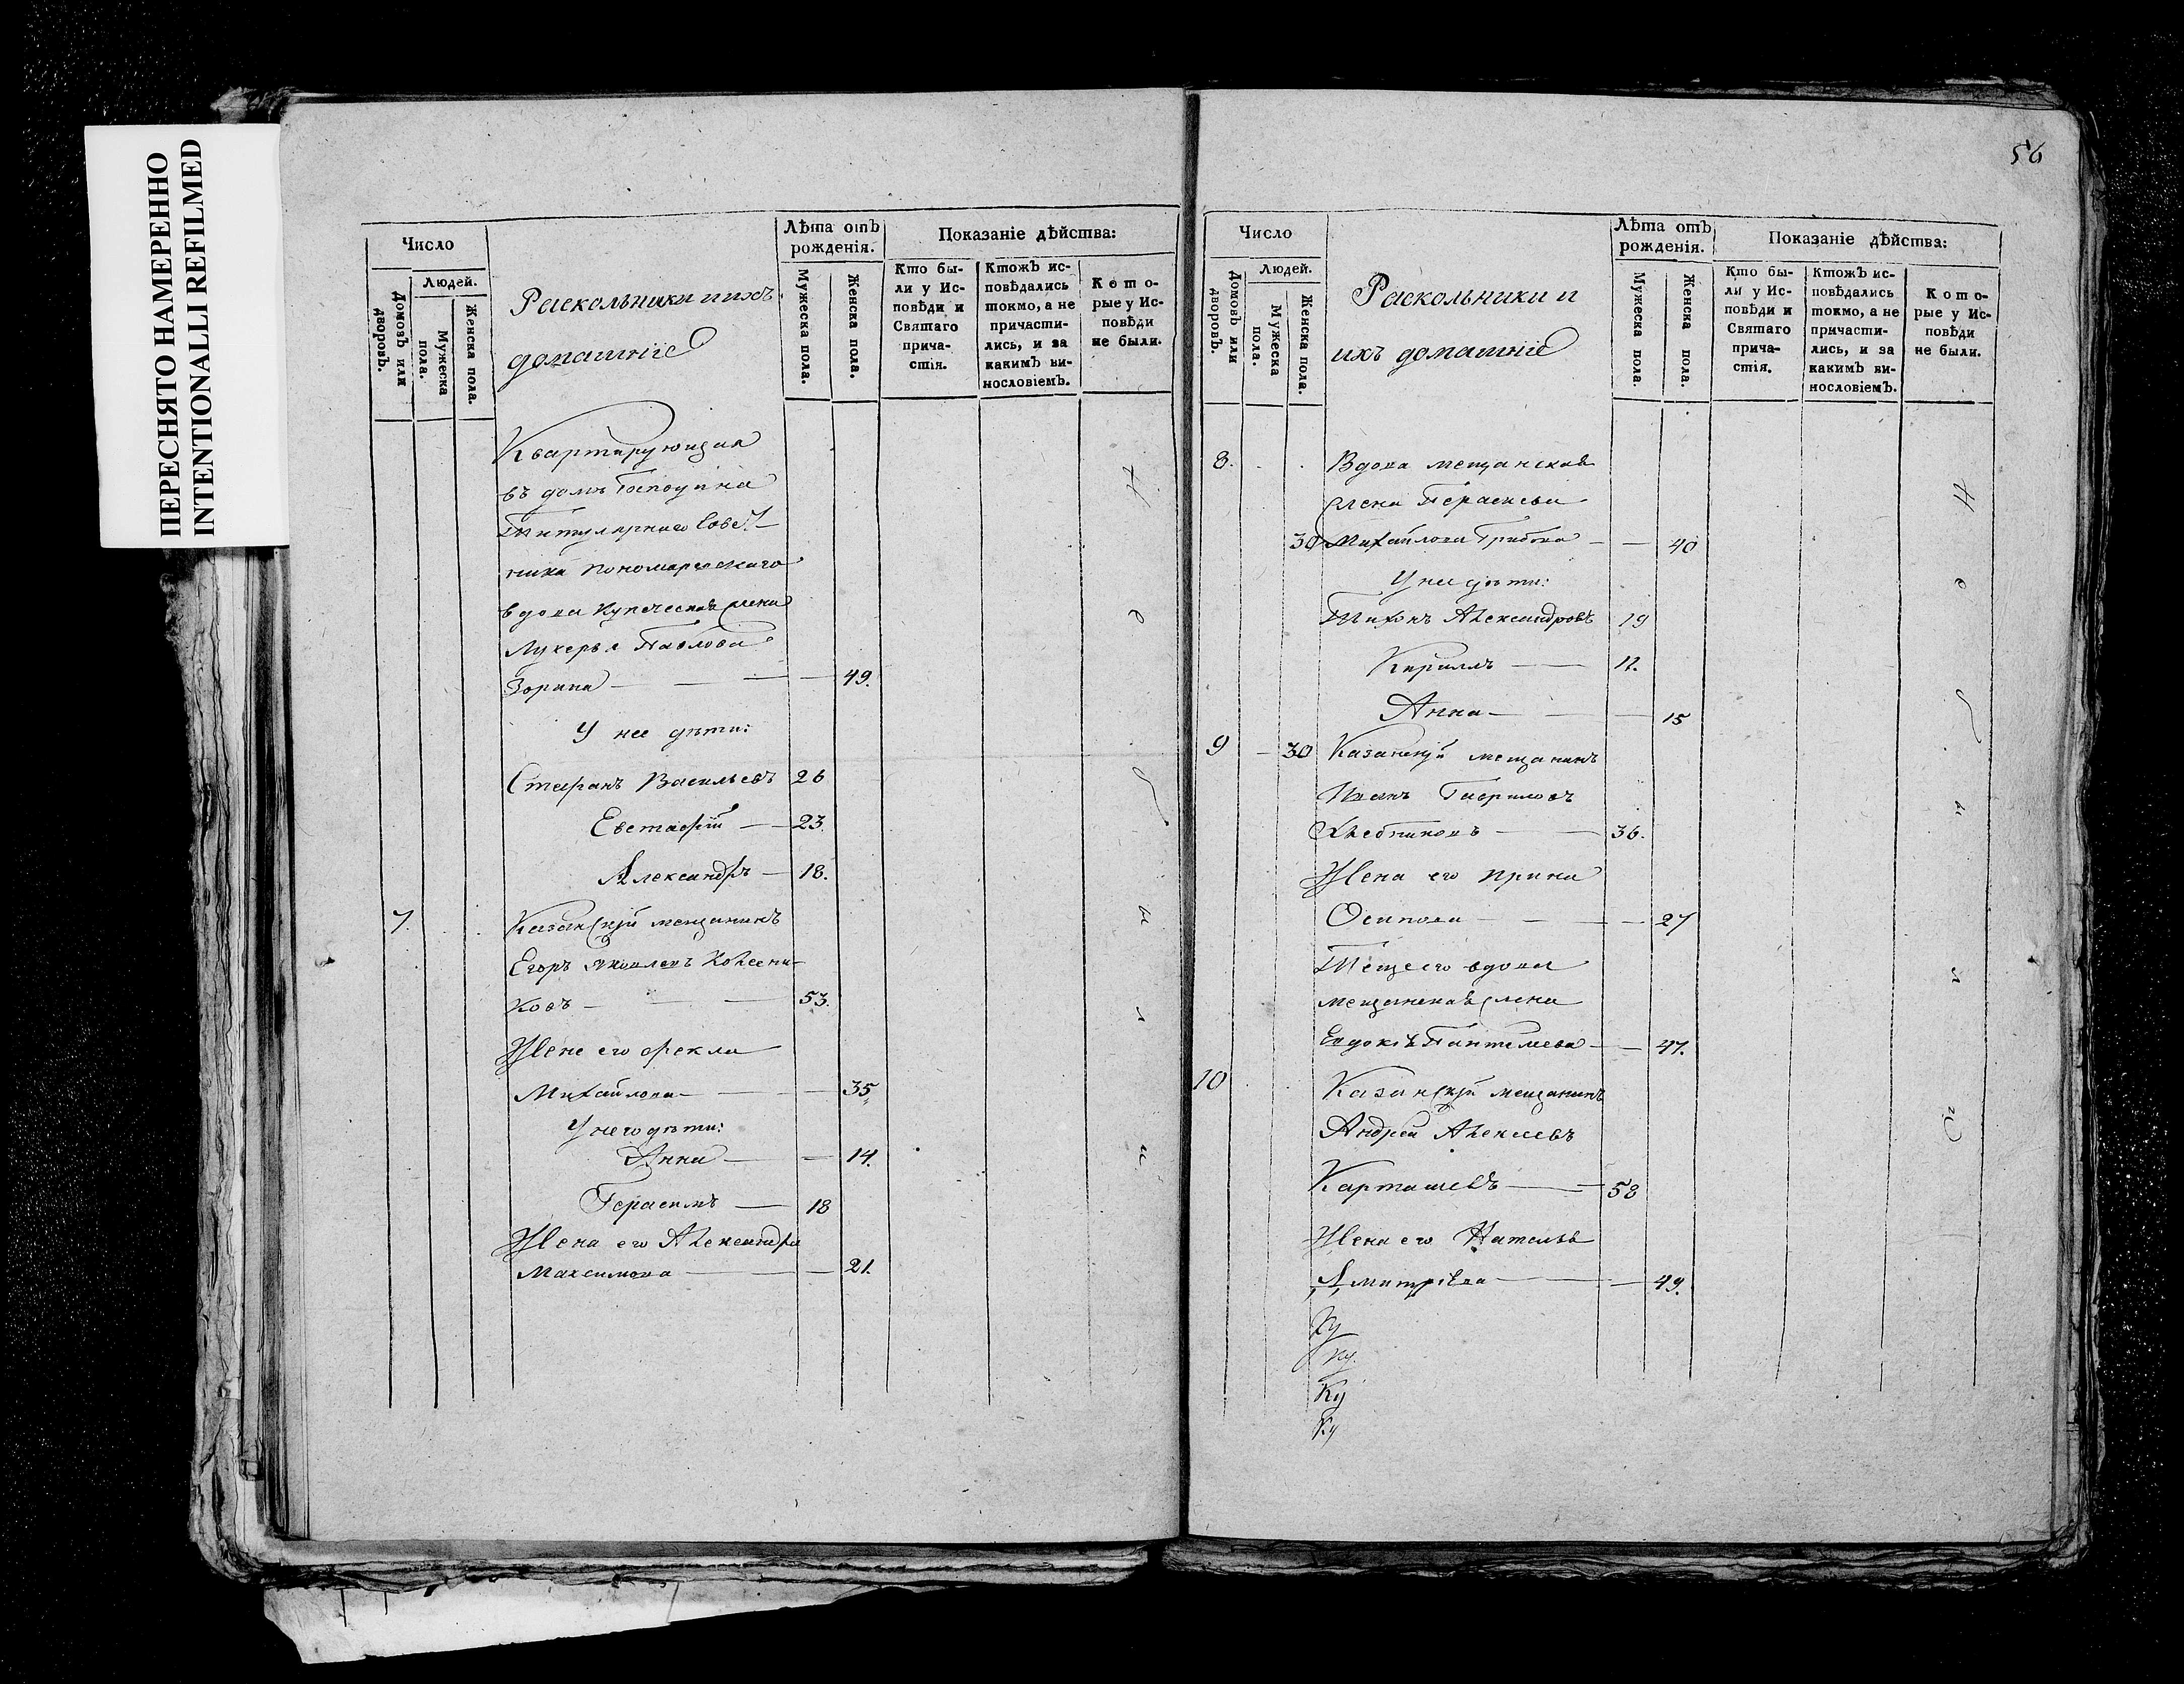 ПЕРЕСНЯТО НАМЕРЕННО
INTENTIONALLI REFILMED
Число
Людей.
Домовъ или дворовъ.
Мужеска пола.
Женска пола.
Раскольники и ихъ
домашніе
Лѣта отъ
рожденія.
Мужеска пола.
Женска пола.
Показаніе дѣйства:
Кто бы-
ли у Ис-
повѣди и
Святаго
прича-
стія.
Ктожъ ис-
повѣдались
токмо, а не
причасти-
лись, и за
какимъ ви-
нословіемъ.
Кото-
рые у Ис-
повѣди
не были.
Квартирующая
въ домѣ Господина
Титулярнаго Совет-
ника Пономаревскаго
вдова Купеческая жена
Лукерья Павлова
Зорина 49.
У нее дѣти:
Стефанъ Васильевъ 26
Евстафій 23.
Александръ 18.
7. Казанскій мещанинъ
Егоръ Яковлевъ Колесни-
ковъ 53.
Жена его Фекла
Михайлова 35
У него дѣти:
Анна 14.
Герасимъ 18
Жена его Александра
Максимова 21.
Не были
56
Число
Людей.
Домовъ или дворовъ.
Мужеска пола.
Женска пола.
Раскольники и
ихъ домашніе
Лѣта отъ
рожденія.
Мужеска пола.
Женска пола.
Показаніе дѣйства:
Кто бы-
ли у Ис-
повѣди и
Святаго
прича-
стія.
Ктожъ ис-
повѣдались
токмо, а не
причасти-
лись, и за
какимъ ви-
нословіемъ.
Кото-
рые у Ис-
повѣди
не были.
8. Вдова мещанская
жена
30 Михайлова 40
У нее дѣти:
Тихонъ Александровъ 19
Кириллъ 12.
Анна 15
9 30 Казанскій мещанинъ
Иванъ Гавриловъ
Хлебниковъ 36.
Жена его Ирина
Осипова 27
Теща его вдова
мещанская жена
Евдокія Пантелеева 47.
10 Казанскій мещанинъ
Андрей Алексеевъ
Карташевъ 58
Жена его Наталья
Дмитріева 49.
Ку
Ку
Ку
Не были